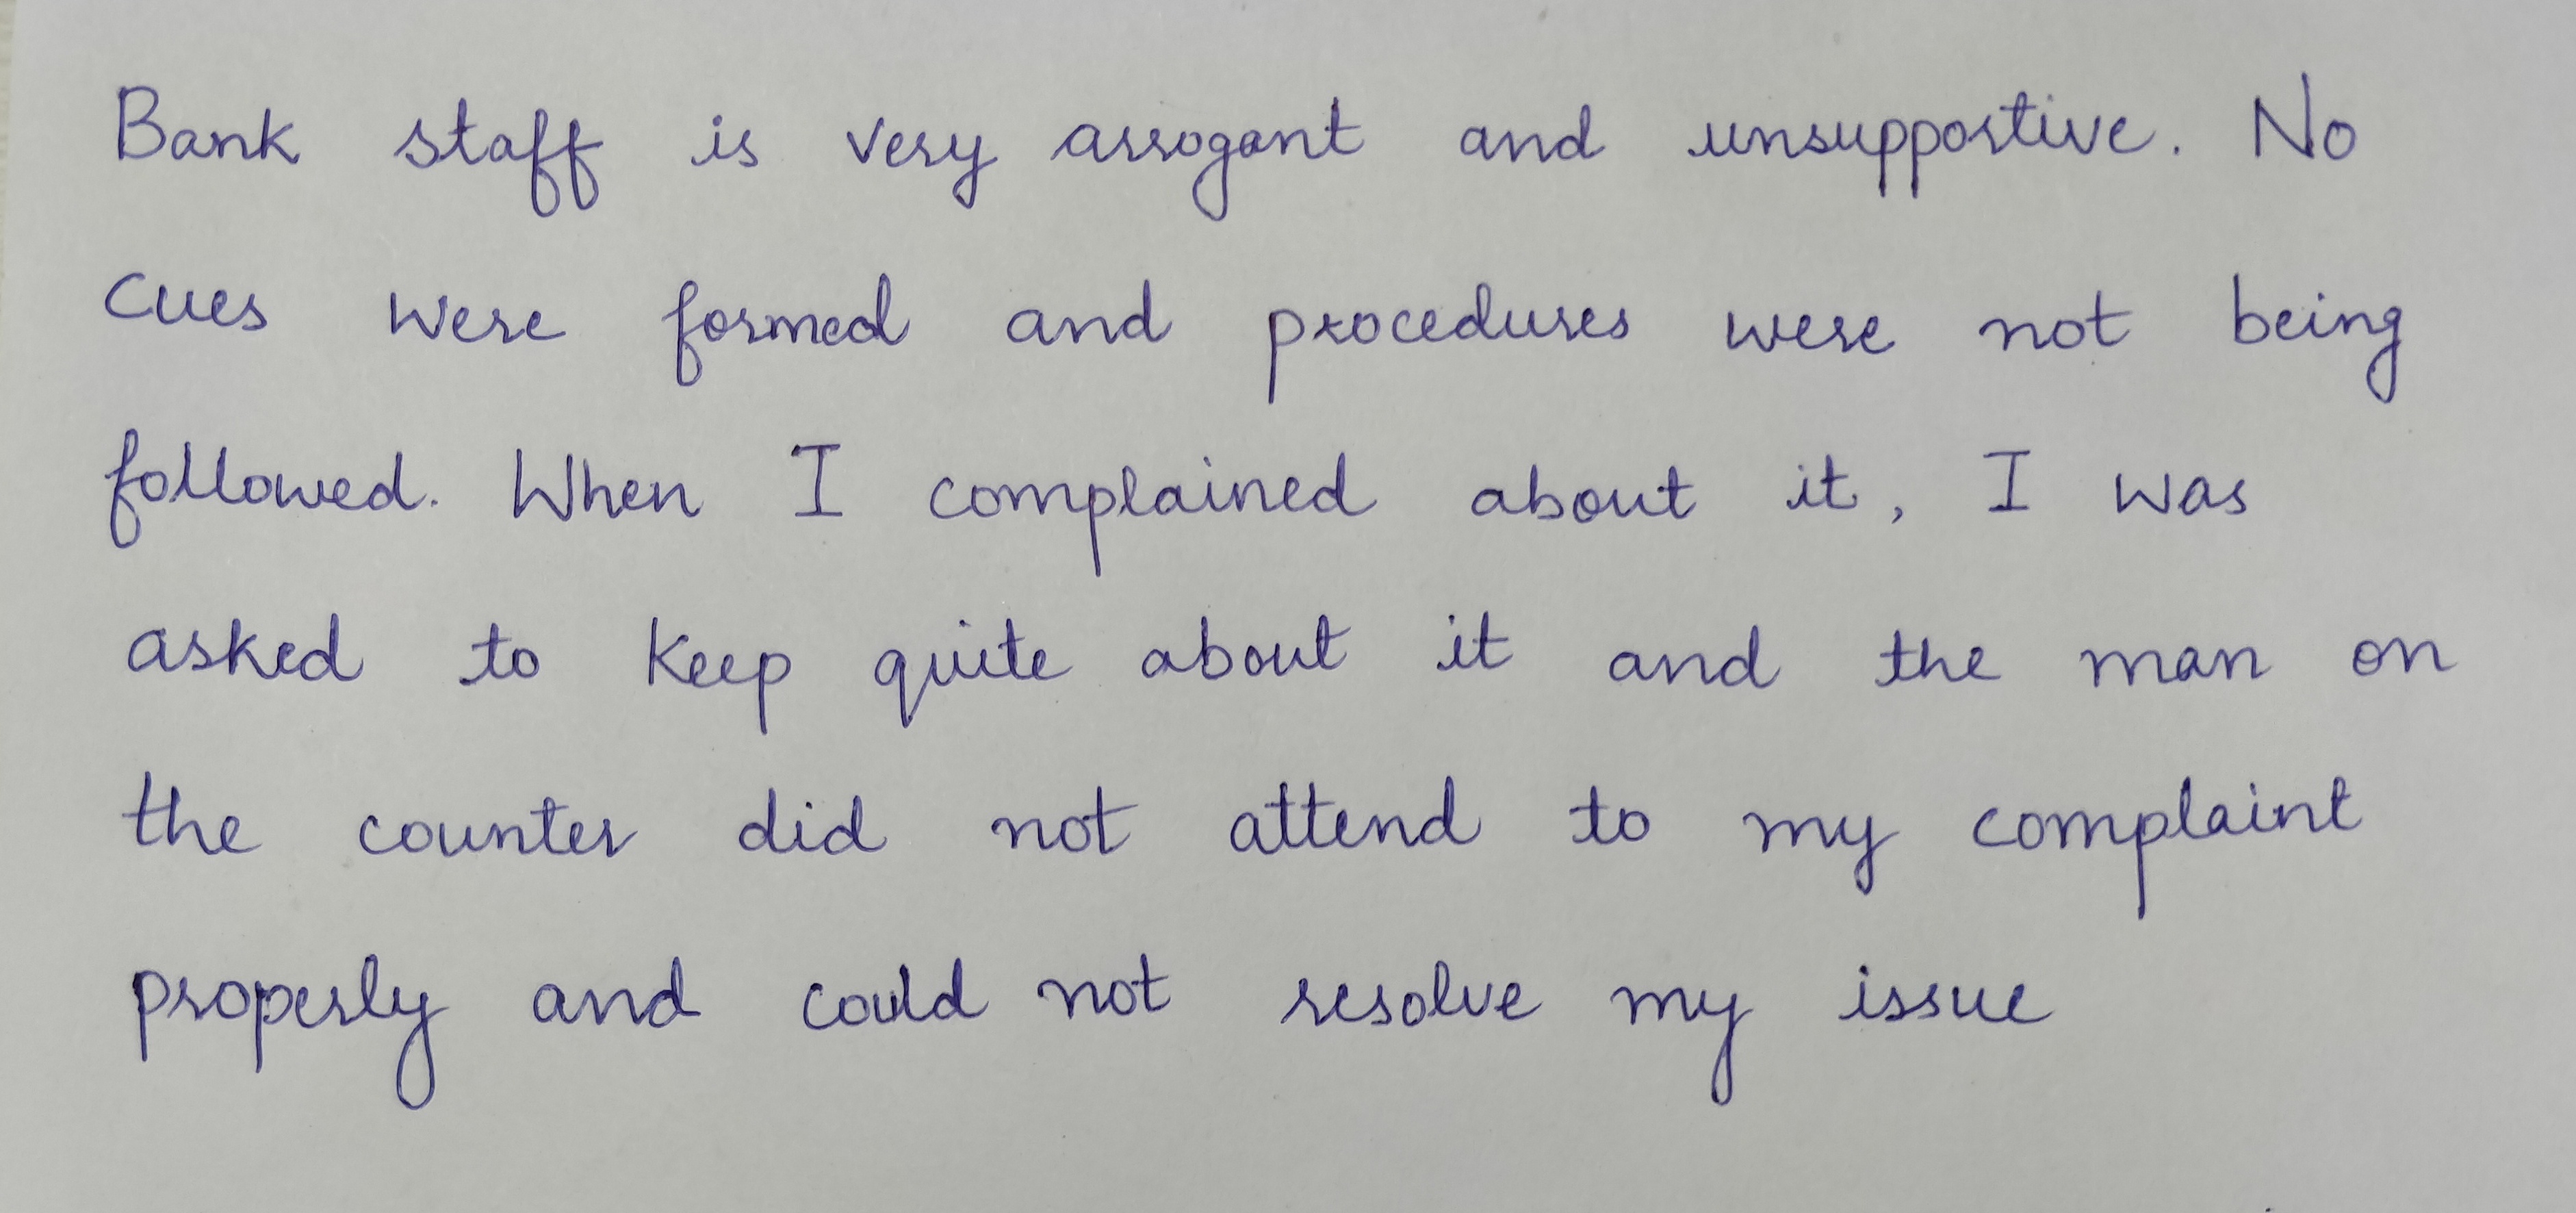 Bank staff is very arrogant and unsupportive. No
cues were formed and procedures were not being
followed. When I complained about it, I was
asked to keep quite about it and the man on
the counter did not attend to my complaint
properly and could not resolve my issue